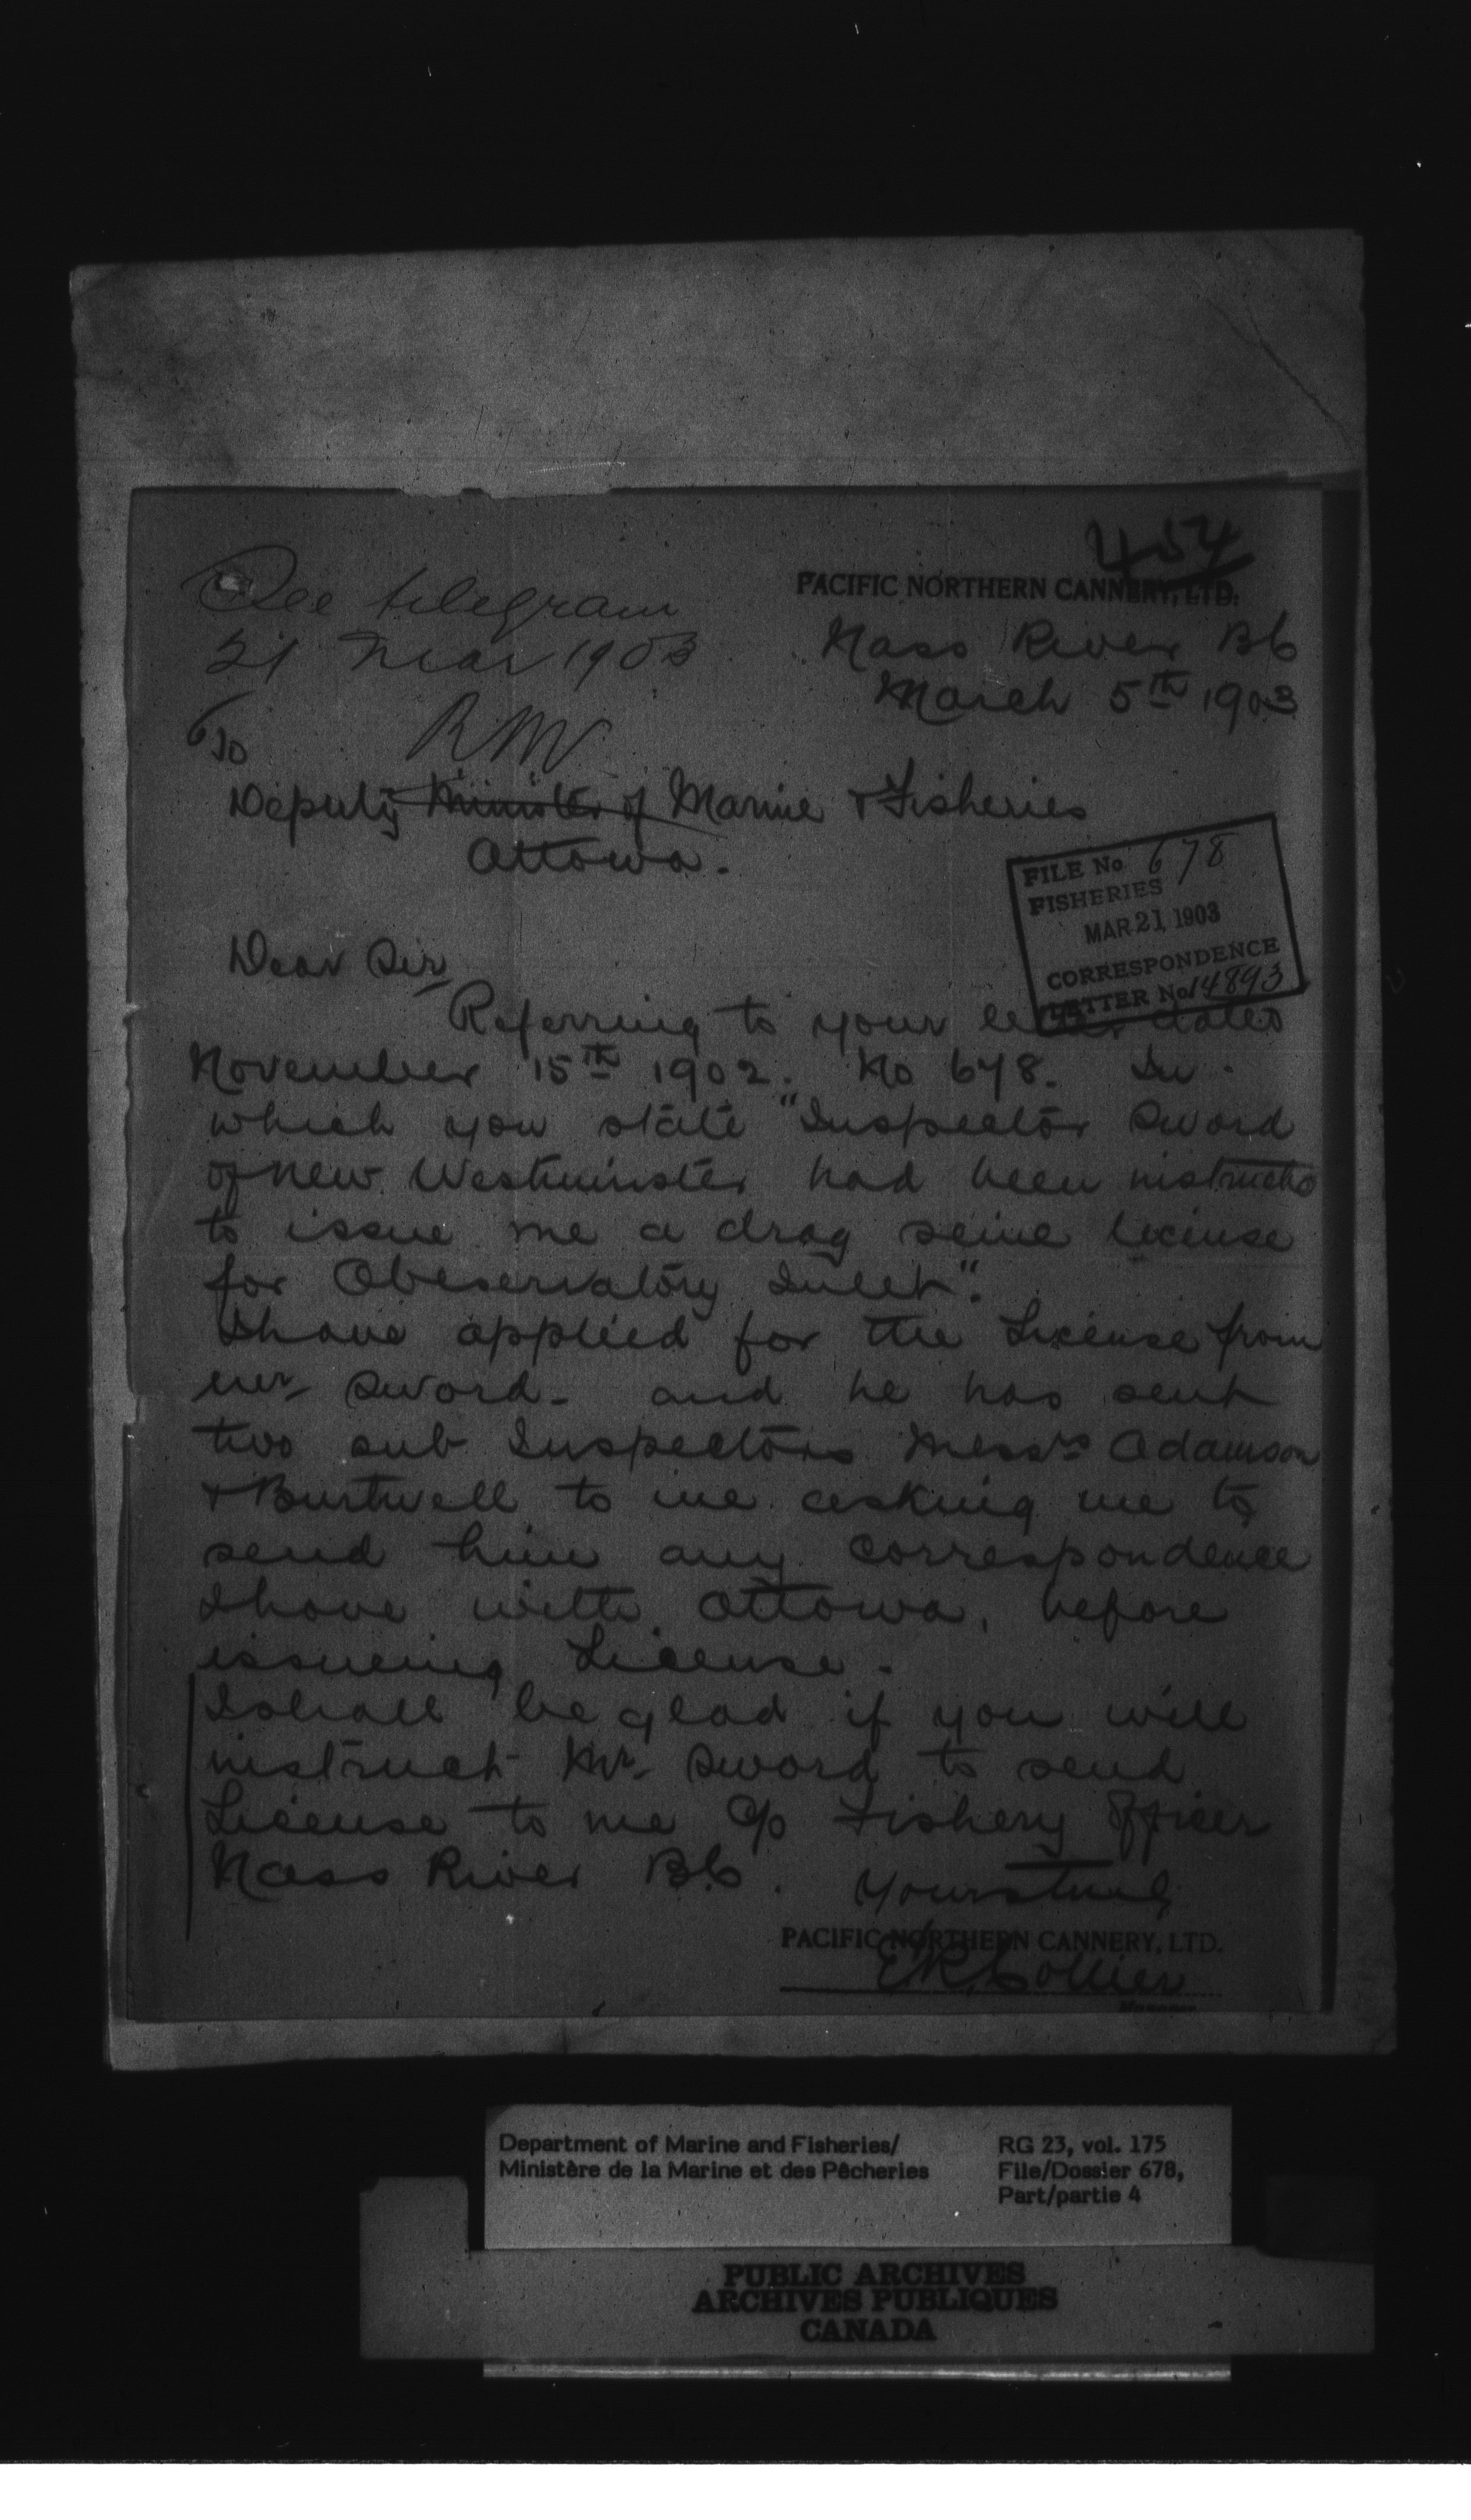 454
PACIFIC NORTHERN CANNERY, LTD.
See telegram
21 Mar 1903
RMV
Nass River BC
March 5th 1903
To
Deputy Minister of Marine & Fisheries
Ottowa.
FILE No 678
FISHERIES
MAR 21 1903
CORRESPONDENCE
LETTER No 14893
Dear Sir
Referring to your letter dated
November 15th 1902. No 678. In
which you state "Inspector Sword
of New Westminster had been instructed
to issue me a drag seine license
for Obeservatory Inlet".
I have applied for the License from
Mr Sword - and he has sent
two sub Inspectors Messrs Adamson
& Burtwell to me asking me to
send him any correspondence
I have with Ottowa, before
issueing License.
I shall be glad if you will
instruct Mr Sword to send
License to me c/o Fishery Officer
Nass River B.C.
Yours truly
PACIFIC NORTHERN CANNERY, LTD.
E.R. Collier
Manager
Department of Marine and Fisheries/
Ministère de la Marine et des Pêcheries
RG 23, vol. 175
File/Dossier 678,
Part/partie 4
PUBLIC ARCHIVES
ARCHIVES PUBLIQUES
CANADA